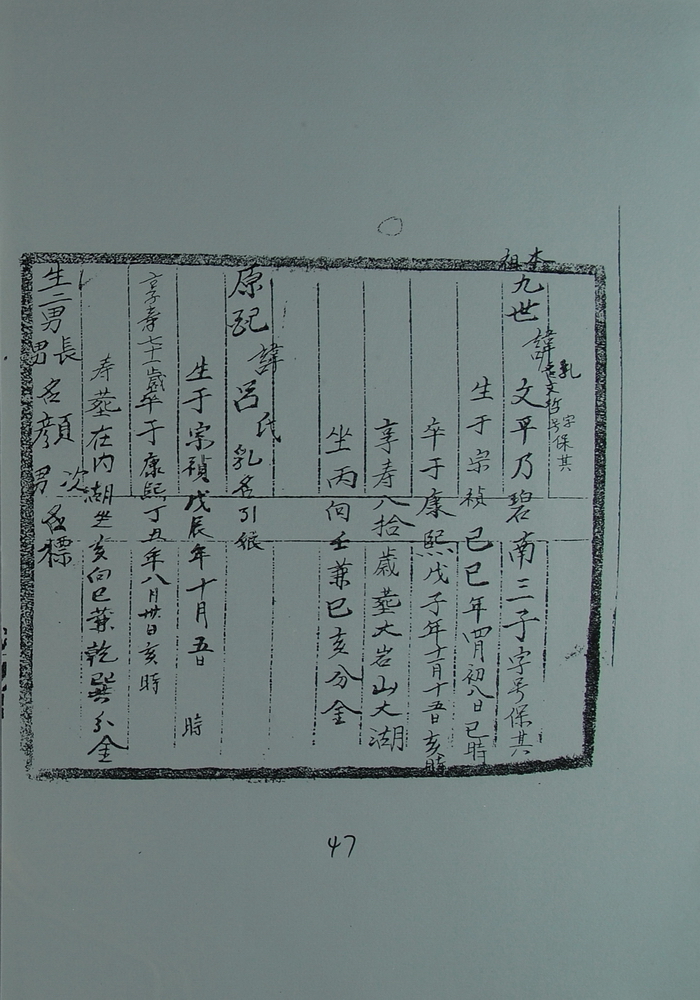 本祖九世
乳名文哲
字号保其
諱文平乃碧南三子字号保其
生于宗禎己巳年四月初八日巳時
卒于康熙戊子年十二月十五日亥時
享寿八拾歳塟大岩山大湖
坐丙向壬兼巳亥分金
原配諱呂氏乳名引娘
生于宗禎戊辰年十月五日 時
享寿七十歳卒于康熙丁丑年八月廿日亥時
寿塟在内湖坐亥向巳兼乾巽分金
生二男長男名彦顔次男名標
47